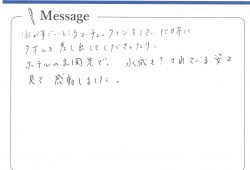 Message
チェックインをしていた時に
タオルを差し出してくださったり、
ホテルの玄関先で、水拭き？されている姿を
見て感動しました。